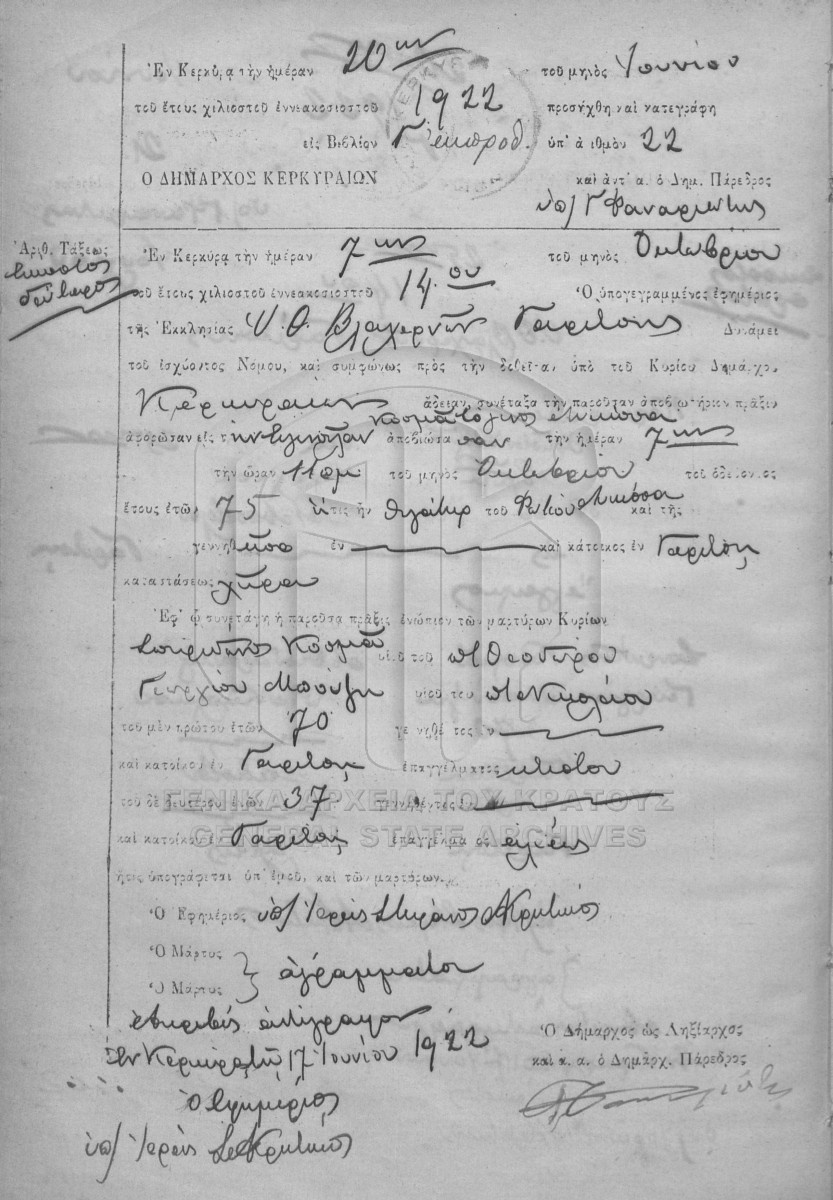 Ἐν Κερκύρᾳ τὴν ἡμέραν 20ην τοῦ μηνὸς Ἰουνίου
τοῦ ἔτους χιλιοστοῦ ἐννεακοσιοστοῦ 1922 προσήχθη καὶ κατεγράφη
εἰς Βιβλίον Γ ἐκπροθ. ὑπ' ἀριθμὸν 22
Ο ΔΗΜΑΡΧΟΣ ΚΕΡΚΥΡΑΙΩΝ καὶ ἀντ' α. ὁ Δημ. Πάρεδρος
ὑπ/ Γ Φαναριώτης
Ἀριθ. Τάξεως
εἰκοστὸς
δεύτερος
Ἐν Κερκύρᾳ τὴν ἡμέραν 7ην τοῦ μηνὸς Ὀκτωβρίου
τοῦ ἔτους χιλιοστοῦ ἐννεακοσιοστοῦ 14ου Ὁ ὑπογεγραμμένος ἐφημέριος
τῆς Ἐκκλησίας Υ. Θ. Βλαχερνῶν Γαρίτσης Δυνάμει
τοῦ ἰσχύοντος Νόμου, καὶ συμφώνως πρὸς τὴν δοθεῖσαν ὑπὸ τοῦ Κυρίου Δημάρχου
Κερκυραίων ἄδειαν, συνέταξα τὴν παροῦσαν ἀποβιωτήριον πρᾶξιν
ἀφορῶσαν εἰς τὴν ἀποβιώσασαν τὴν ἡμέραν 7ην
τὴν ὥραν 11 πμ. τοῦ μηνὸς Ὀκτωβρίου τοῦ ὁδεύοντος
ἔτους ἐτῶν 75 ἥτις ἦν θυγάτηρ τοῦ Φωτίου καὶ τῆς
γεννηθεῖσα ἐν καὶ κάτοικος ἐν Γαρίτσῃ
καταστάσεως χήρα
Ἐφ' ᾧ συνετάγη ἡ παροῦσα πρᾶξις ἐνώπιον τῶν μαρτύρων Κυρίων
Κοσμᾶ υἱοῦ τοῦ π/ Θεοδώρου
Γεωργίου Μπούζη υἱοῦ του π/ Νικολάου
τοῦ μὲν πρώτου ἐτῶν 70 γεννηθέντος ἐν
καὶ κατοίκου ἐν Γαρίτσῃ ἐπαγγέλματος κτίστου
τοῦ δὲ δευτέρου ἐτῶν 37 γεννηθέντος ἐν
ΓΕΝΙΚΑ ΑΡΧΕΙΑ ΤΟΥ ΚΡΑΤΟΥΣ
GENERAL STATE ARCHIVES
καὶ κατοίκου ἐν Γαρίτσῃ ἐπαγγέλματος ἁλιεὺς
ἥτις ὑπογράφεται ὑπ' ἐμοῦ, καὶ τῶν μαρτύρων.
Ὁ Ἐφημέριος ὑπ/ Ἱερεὺς Στέφανος Κρητικός
Ὁ Μάρτυς
Ὁ Μάρτυς } ἀγράμματοι
Ἀκριβὲς ἀντίγραφον
Ἐν Κερκύρᾳ τῇ 17 Ἰουνίου 1922
Ὁ Δήμαρχος ὡς Ληξίαρχος
καὶ ἀ. α. ὁ Δημάρχ. Πάρεδρος
ὁ ἐφημέριος
ὑπ/ Ἱερεὺς Σ. Κρητικός